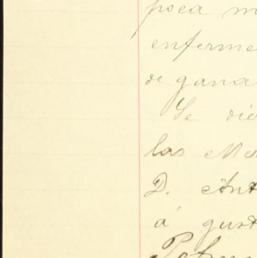 poca m
enferme
de gana
Se dió
las Me
D. Ant
á gust